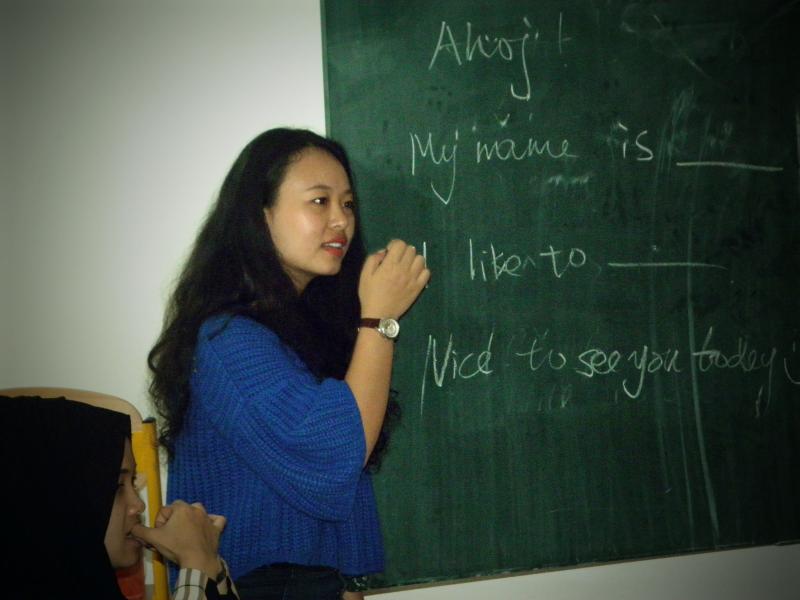 Ahoj!
My name is ____
I like to ____
Nice to see you today :